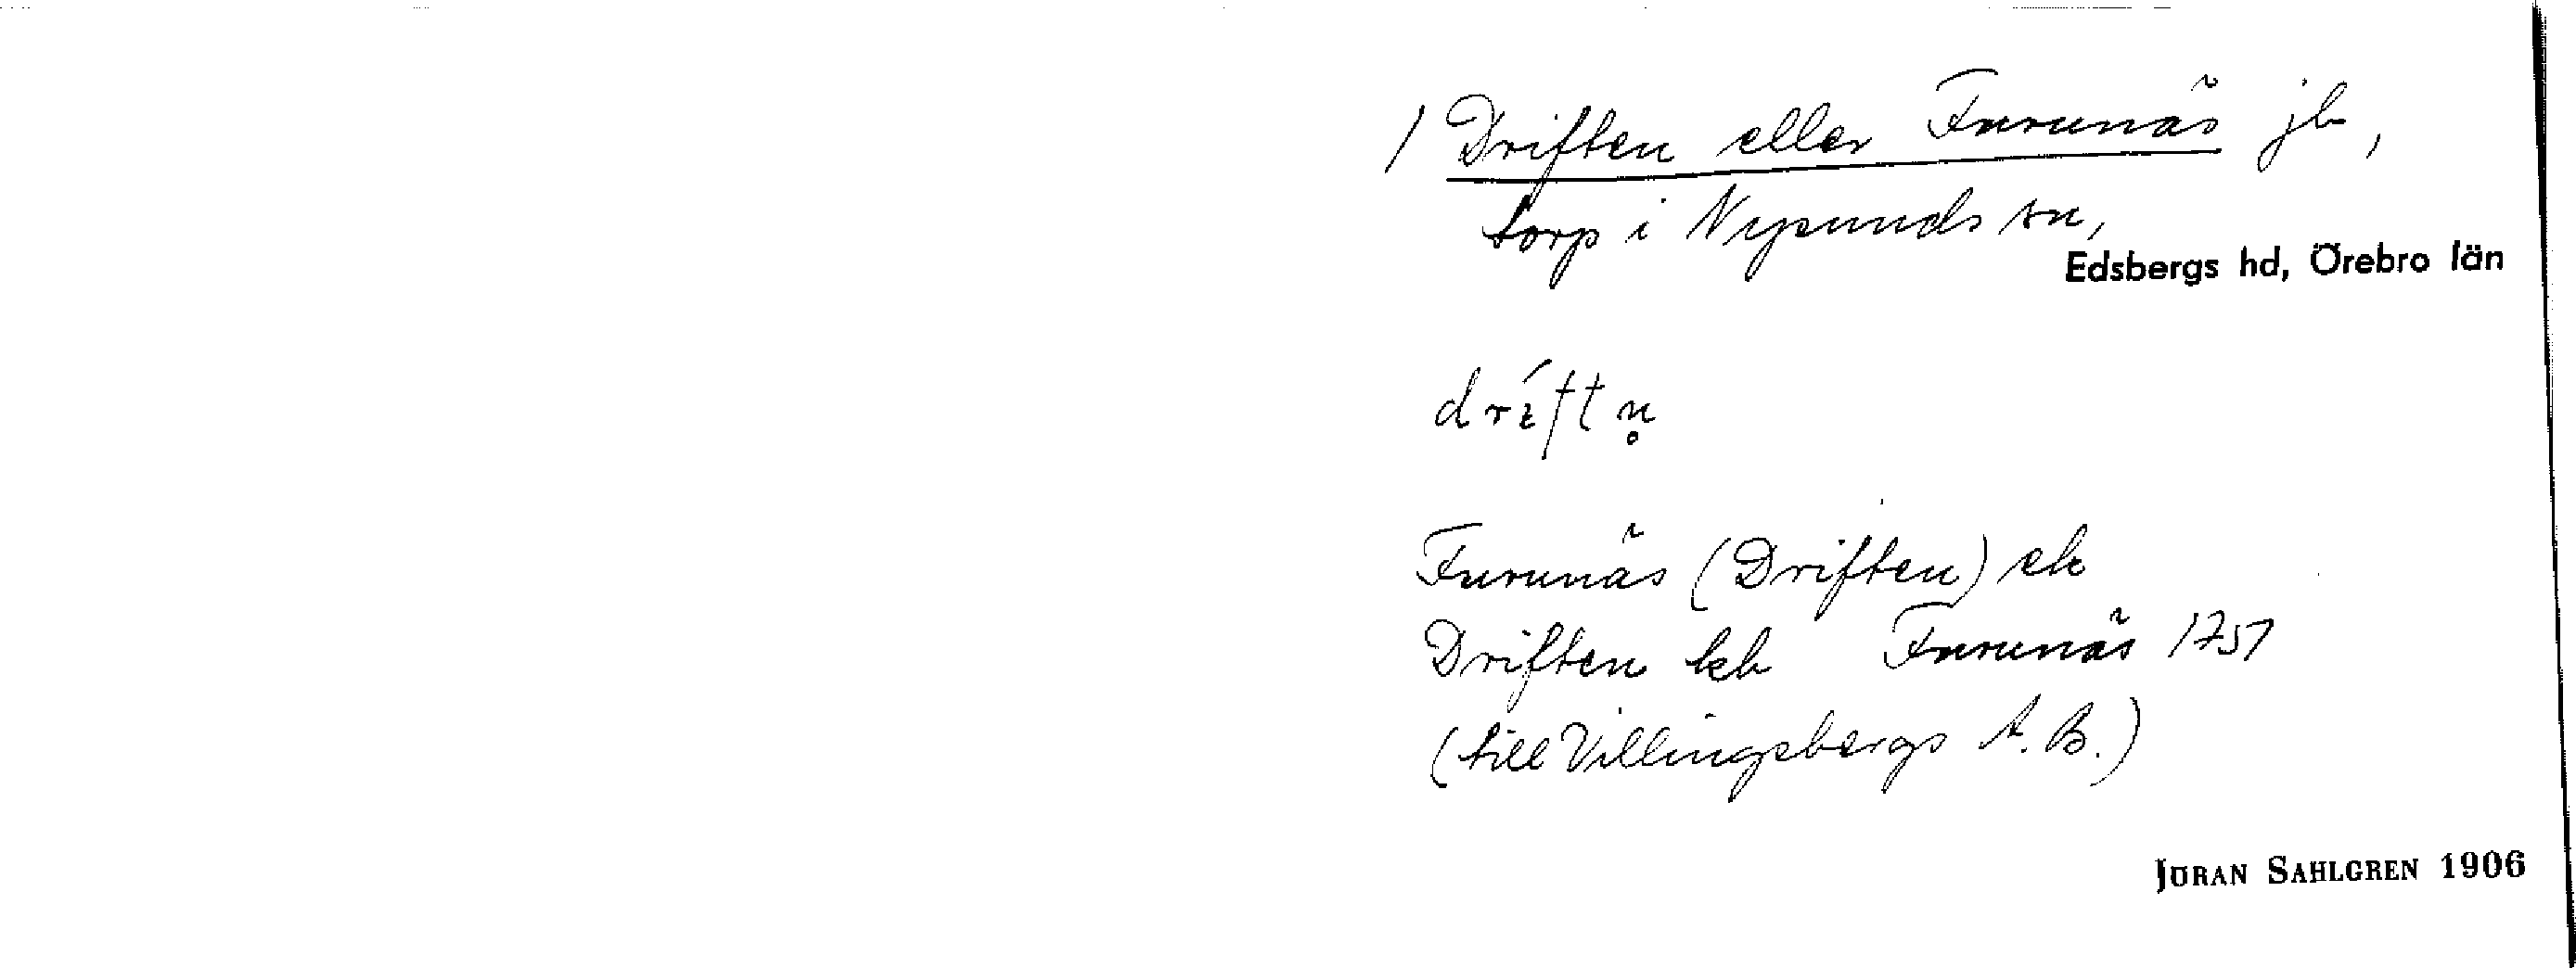 / Driften eller Furunäs jb,
torp i Nysunds sn,
Edsbergs hd, Örebro län
dríftn̥
Furunäs (Driften) ek
Driften kb Furunäs 1757
(till Villingsbergs A.B.)
JÖRAN SAHLGREN 1906